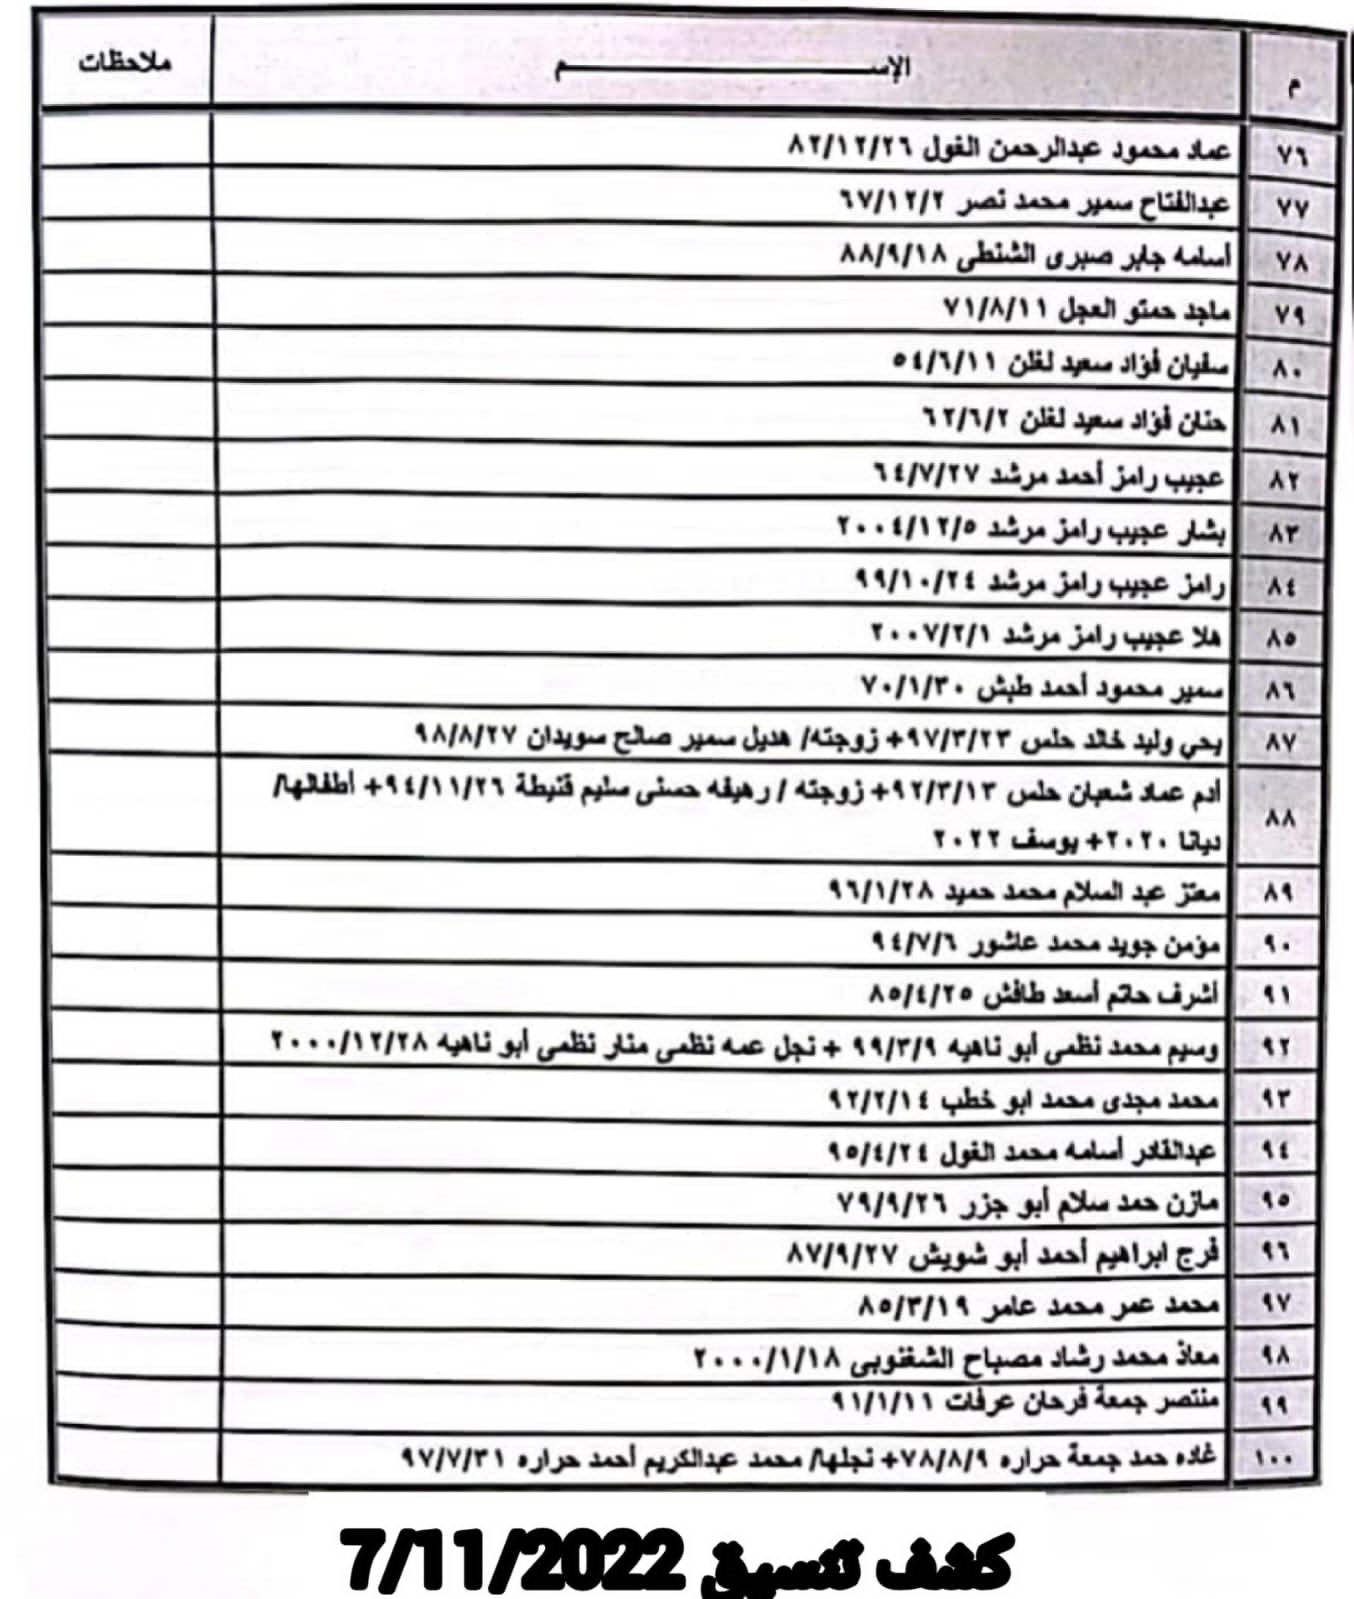 م الإســـــــــــــــــــم ملاحظات
٧٦ عماد محمود عبدالرحمن الغول ٨٢/١٢/٢٦
٧٧ عبدالفتاح سمير محمد نصر ٦٧/١٢/٢
٧٨ أسامه جابر صبرى الشنطى ٨٨/٩/١٨
٧٩ ماجد حمتو العجل ٧١/٨/١١
٨٠ سفيان فؤاد سعيد لغلن ٥٤/٦/١١
٨١ حنان فؤاد سعيد لغلن ٦٢/٦/٢
٨٢ عجيب رامز أحمد مرشد ٦٤/٧/٢٧
٨٣ بشار عجيب رامز مرشد ٢٠٠٤/١٢/٥
٨٤ رامز عجيب رامز مرشد ٩٩/١٠/٢٤
٨٥ هلا عجيب رامز مرشد ٢٠٠٧/٢/١
٨٦ سمير محمود أحمد طبش ٧٠/١/٣٠
٨٧ يحي وليد خالد حلس ٩٧/٣/٢٣+ زوجته/ هديل سمير صالح سويدان ٩٨/٨/٢٧
٨٨ أدم عماد شعبان حلس ٩٢/٣/١٣+ زوجته / رهيفه حسنى سليم قنيطة ٩٤/١١/٢٦+ أطفالها/
ديانا ٢٠٢٠+ يوسف ٢٠٢٢
٨٩ معتز عبد السلام محمد حميد ٩٦/١/٢٨
٩٠ مؤمن جويد محمد عاشور ٩٤/٧/٦
٩١ أشرف حاتم أسعد طافش ٨٥/٤/٢٥
٩٢ وسيم محمد نظمى أبو ناهيه ٩٩/٣/٩ + نجل عمه نظمى منار نظمى أبو ناهيه ٢٠٠٠/١٢/٢٨
٩٣ محمد مجدى محمد ابو خطب ٩٢/٢/١٤
٩٤ عبدالقادر أسامه محمد الغول ٩٥/٤/٢٤
٩٥ مازن حمد سلام أبو جزر ٧٩/٩/٢٦
٩٦ فرج ابراهيم أحمد أبو شويش ٨٧/٩/٢٧
٩٧ محمد عمر محمد عامر ٨٥/٣/١٩
٩٨ معاذ محمد رشاد مصباح الشغنوبى ٢٠٠٠/١/١٨
٩٩ منتصر جمعة فرحان عرفات ٩١/١/١١
١٠٠ غاده حمد جمعة حراره ٧٨/٨/٩+ نجلها/ محمد عبدالكريم أحمد حراره ٩٧/٧/٣١
كشف تنسيق 7/11/2022